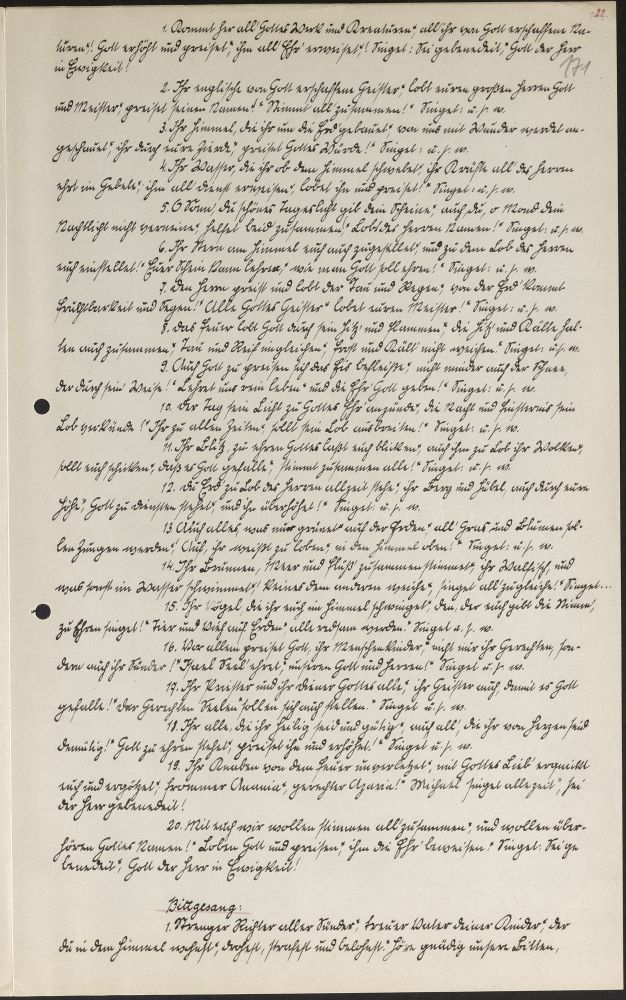 22.
171
1. Kommt her all' Gottes Werk und Kreaturen", all' ihr von Gott erschaffene Na-
turen"! Gott erhöht und preiset", ihm all' Ehr' erweiset"! Singet: Sei gebenedeit", Gott der Herr
in Ewigkeit!
2. Ihr englische von Gott erschaffene Geister", lobt euren großen Herren Gott
und Meister", preiset seinen Namen!" Stimmt all' zusammen!" Singet: u. s. w.
3. Ihr Himmel, die ihr um die Erd' gebauet", von uns mit Wunder werdet an-
geschauet", ihr durch eure Zierde", preiset Gottes Würde!" Singet: u. s. w.
4. Ihr Wasser, die ihr ob dem Himmel schwebet", ihr Kräfte all' des Herren
ehrt im Gebete", ihm all' Dienst erweisen", lobet ihn und preiset!" Singet: u. s. w.
5. O Sonn', du schönes Tageslicht gib dein Scheine", auch du, o Mond dein
Nachtlicht nicht verneine", helfet beid' zusammen", Lob des Herren Namen!" Singet: u. s. w.
6. Ihr Stern am Himmel euch auch zugesellet", und zu dem Lob des Herren
euch einstellet!" Euer Schein kann lehren", wie man Gott soll ehren!" Singet: u. s. w.
7. Den Herrn preist und lobt der Tau und Regen", von der Erd' kommt
Fruchtbarkeit und Segen!" Alle Gottes Geister" lobet euren Meister!" Singet: u. s. w.
8. Das Feuer lobt Gott durch sein Hitz' und Flammen", die Hitz' und Kälte hal-
ten auch zusammen", Tau und Reif ingleichen", Frost und Kält' nicht weichen." Singet: u. s. w.
9. Auch Gott zu preisen sich das Eis befleiße", nicht minder auch der Schnee,
der durch sein' Weise!" Lehret uns rein leben" und die Ehr' Gott geben!" Singet: u. s. w.
10. Der Tag sein Licht zu Gottes Ehr' anzünde", die Nacht und Finsternis sein
Lob verkünde!" Ihr zu allen Zeiten", sollt sein Lob ausbreiten!" Singet: u. s. w.
11. Ihr Blitz, zu ehren Gottes laßt euch blicken", auch ihm zu Lob ihr Wolken",
sollt euch schicken", daß es Gott gefalle", stimmt zusammen alle!" Singet: u. s. w.
12. Die Erd' zu Lob des Herren allzeit stehe", ihr Berg und Hübel, auch durch eure
Höhe", Gott zu Diensten stehet", und ihn überhöhet!" Singet: u. s. w.
13. Auch alles, was nur grünet" auf der Erden", all' Gras und Blumen sol-
len Zungen werden"! Auch, ihr weißt zu loben", in den Himmel oben!" Singet: u. s. w.
14. Ihr Brunnen, Meer und Flüß' zusammenstimmet", ihr Walfisch, und
was sonst im Wasser schwimmet"! keines dem anderen weiche", singet all' zugleiche!" Singet...
15. Ihr Vögel, die ihr euch im Himmel schwinget", den, der euch gibt die Stimm',
zu Ehren singet!" Tier und Vieh auf Erden", alle redsam werden." Singet u. s. w.
16. Vor allem preiset Gott, ihr Menschenkinder", nicht nur ihr Gerechten, son-
dern auch ihr Sünder!" Israel Seel' ehret", unseren Gott und Herren!" Singet u. s. w.
17. Ihr Priester und ihr Diener Gottes alle", ihr Geister auch, damit es Gott
gefalle!" Der Gerechten Seelen" sollen sich auch stellen." Singet u. s. w.
18. Ihr alle, die ihr heilig seid und gütig", auch all', die ihr von Herzen seid
demütig!" Gott zu ehren stehet", preiset ihn und erhöhet!" Singet u. s. w.
19. Ihr Knaben von dem Feuer unverletzet", mit Gottes Lieb' erquickt
euch und ergötzet", frommer Anania", gerechter Azaria!" Michael singet allezeit", sei
der Herr gebenedeit!
20. Mit euch wir wollen stimmen all' zusammen", und wollen über-
hören Gottes Namen!" Loben Gott und preisen", ihm die Ehr' beweisen." Singet: Sei ge
benedeit", Gott der Herr in Ewigkeit!
Bittgesang:
1. Strenger Richter aller Sünder", treuer Vater deiner Kinder", der
du in dem Himmel wohnst", drohest, strafest und belohnst." Höre gnädig unsere Bitten,